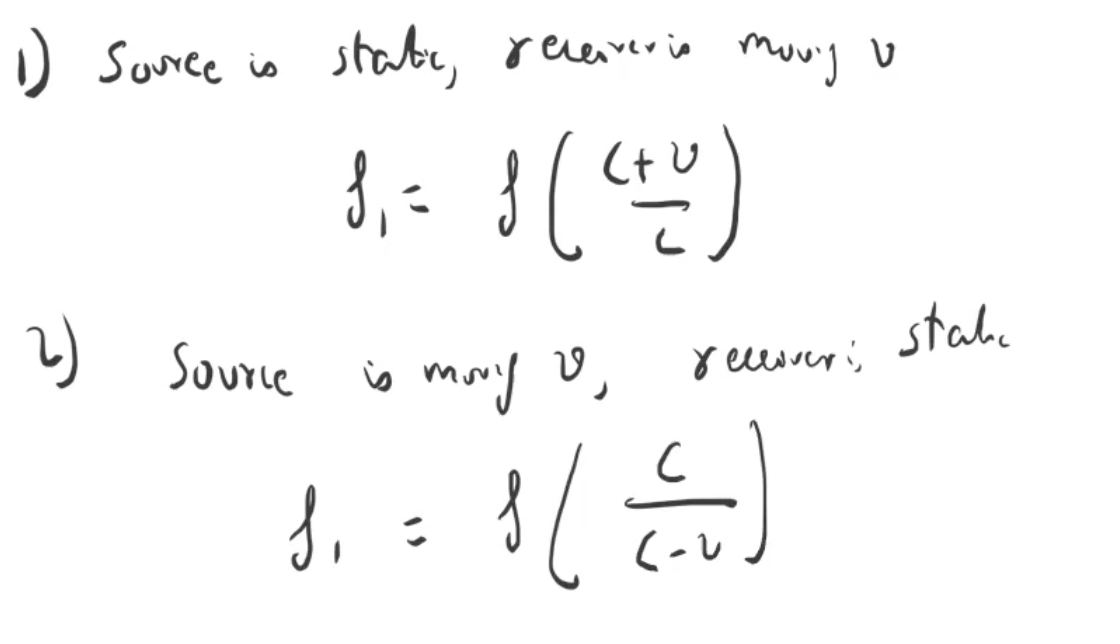 1) Source is static, receiver is moving v
f₁ = f ( (c + v) / c )
2) Source is moving v, receiver is static
f₁ = f ( c / (c - v) )